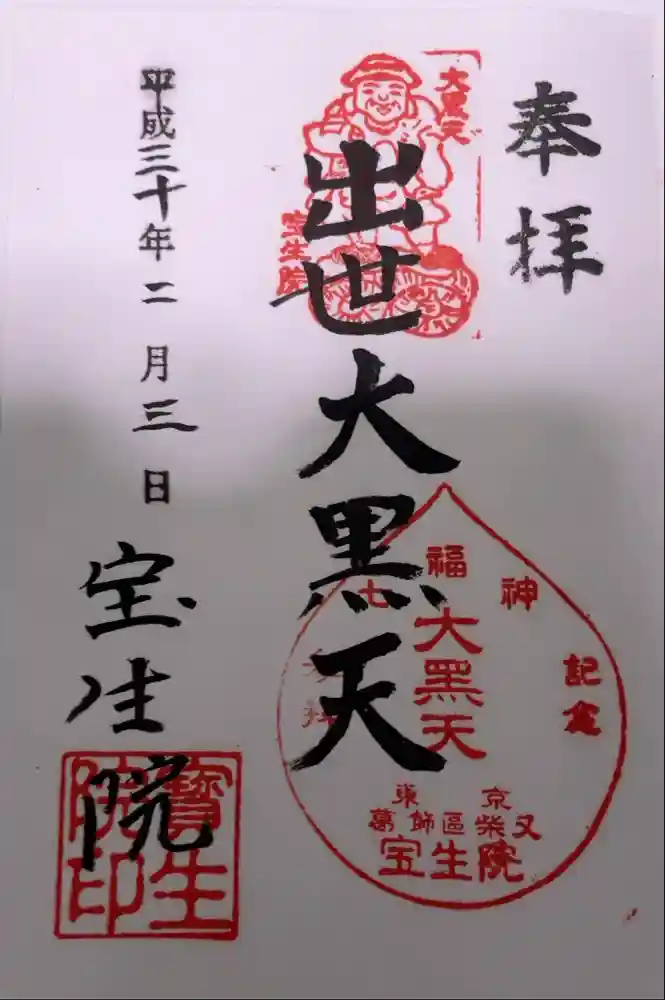 奉拝
大黒天
宝生院
出世大黒天
七福神
参拝
記念
大黒天
東京
葛飾區柴又
宝生院
平成三十年二月三日
宝生院
寶生院印